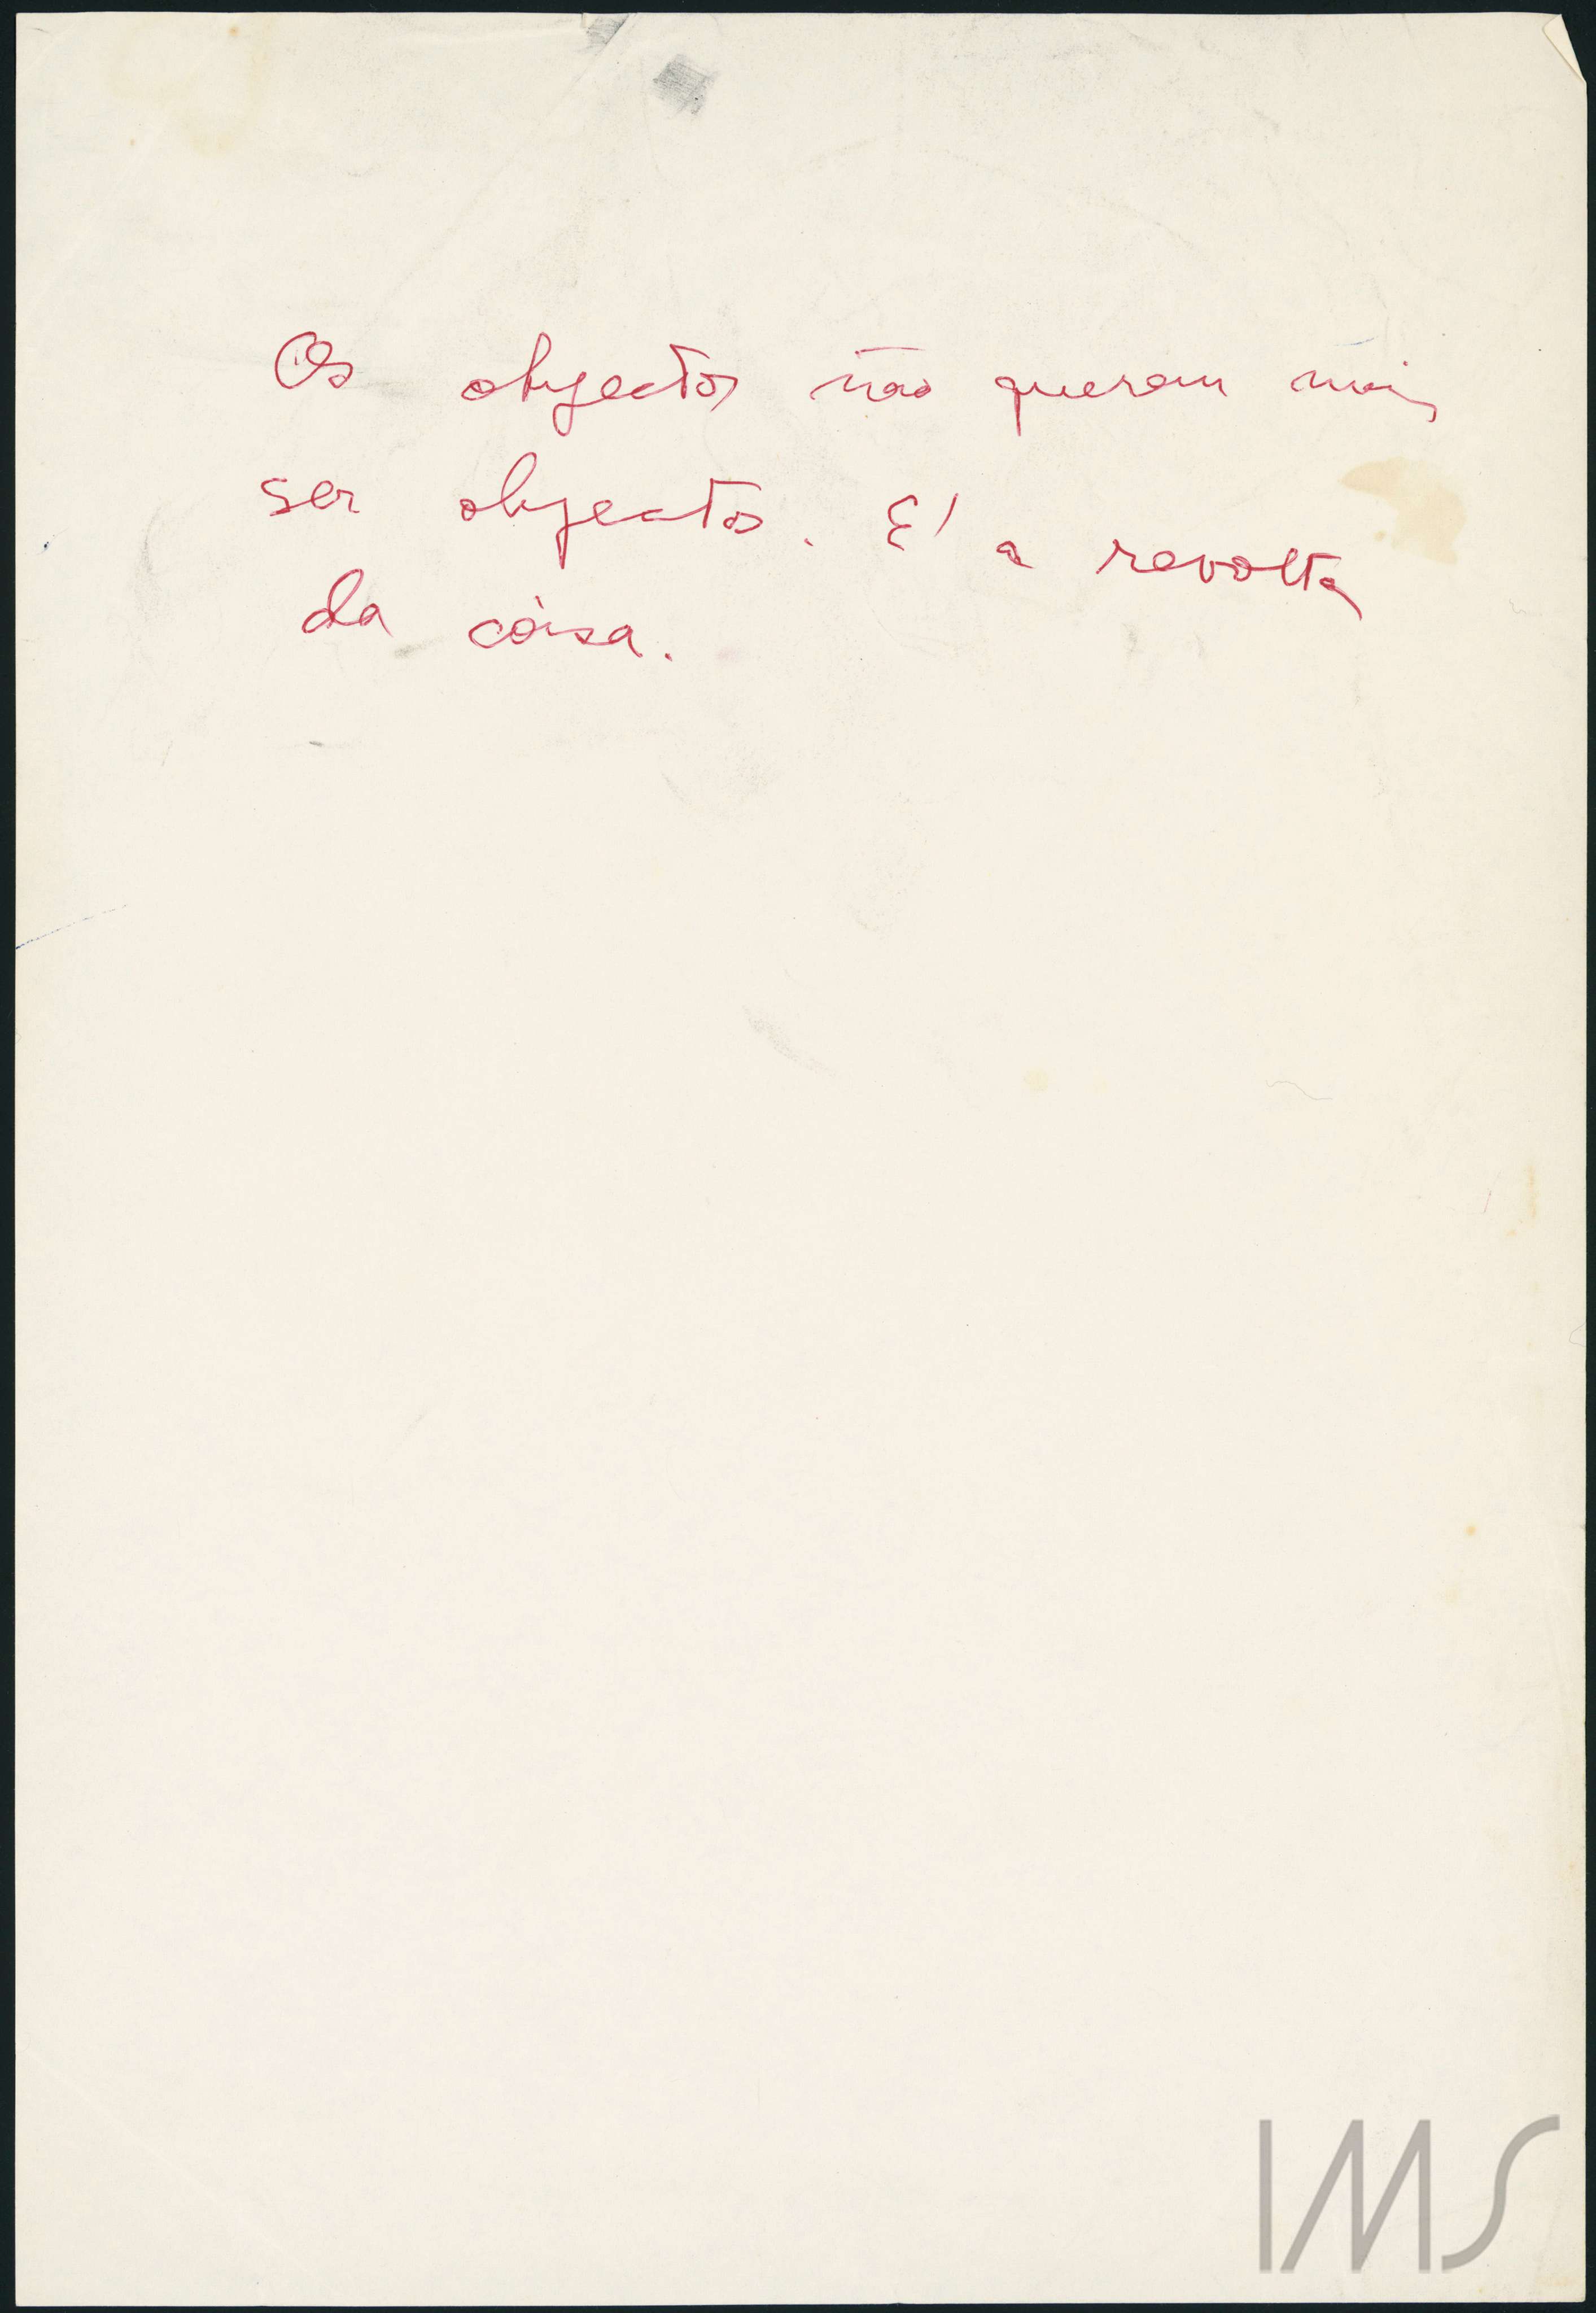 Os objectos não querem mais
ser objectos. E' a revolta
da coisa.
IMS